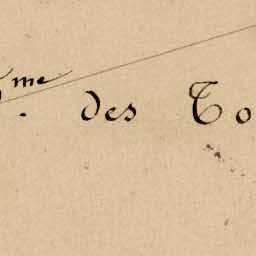 me. des To